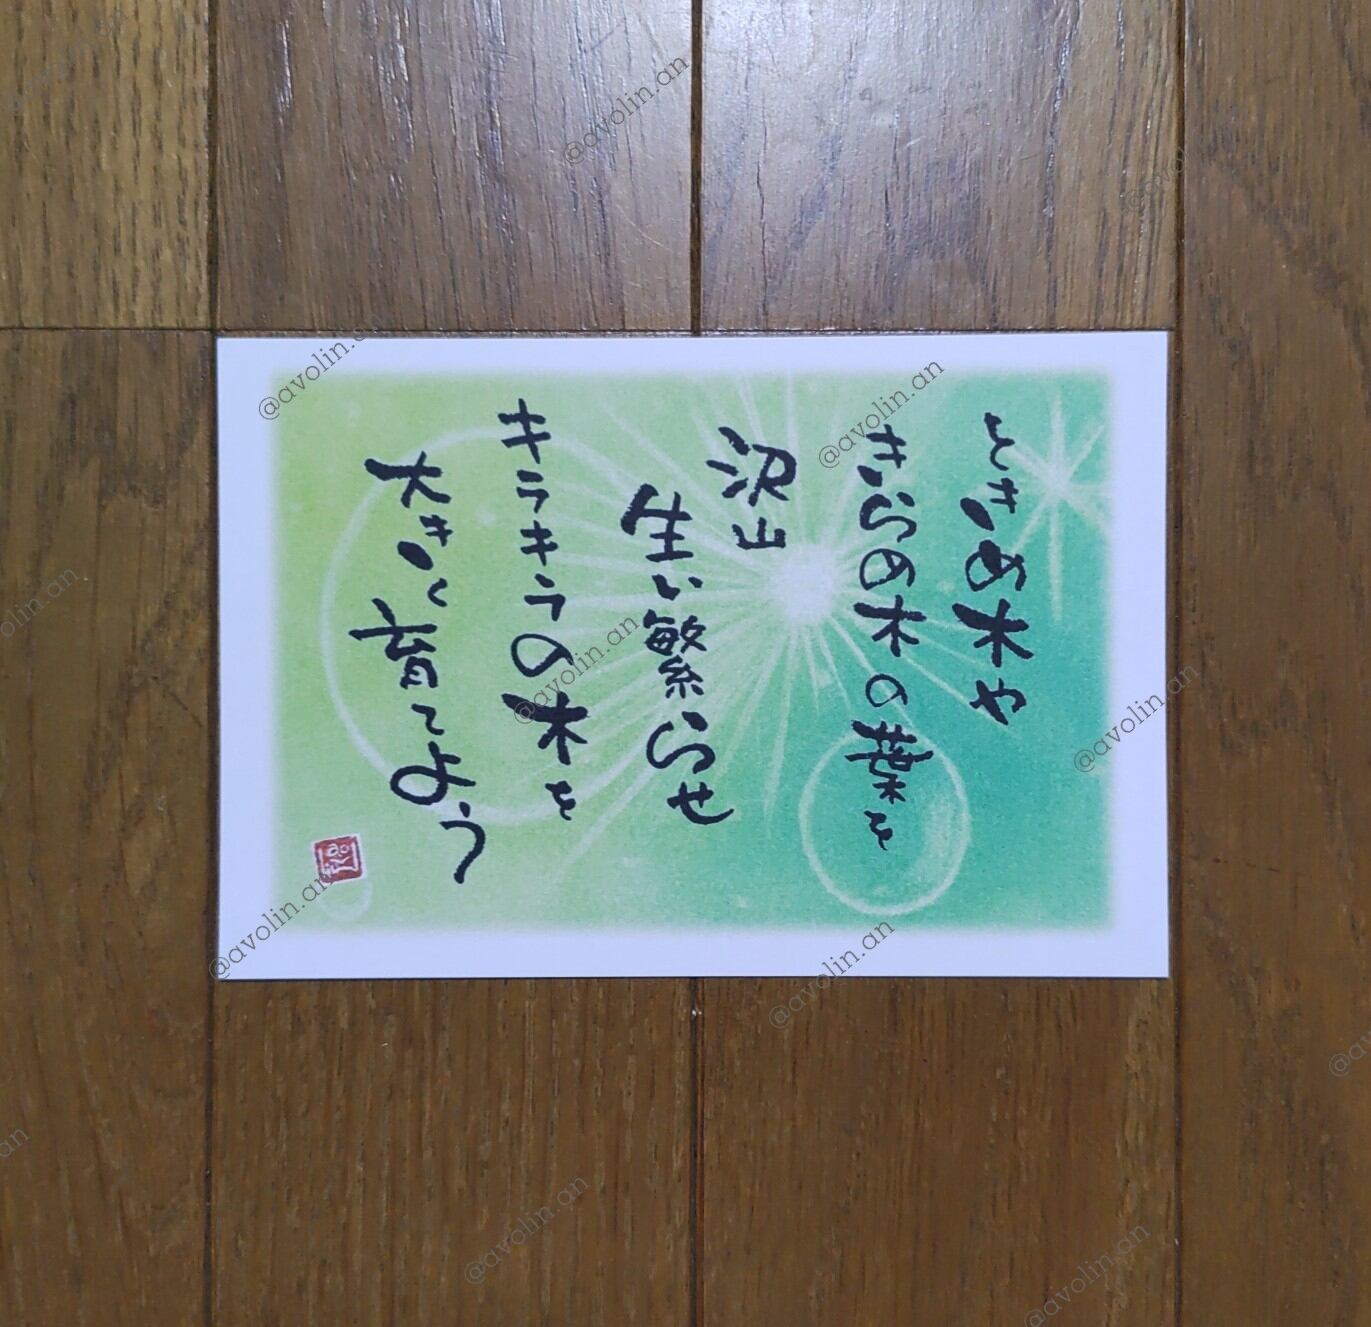 ときめ木や
きらめ木の葉を
沢山
生い繁らせ
キラキラの木を
大きく育てよう
@avolin.an
@avolin.an
@avolin.an
@avolin.an
@avolin.an
@avolin.an
@avolin.an
@avolin.an
@avolin.an